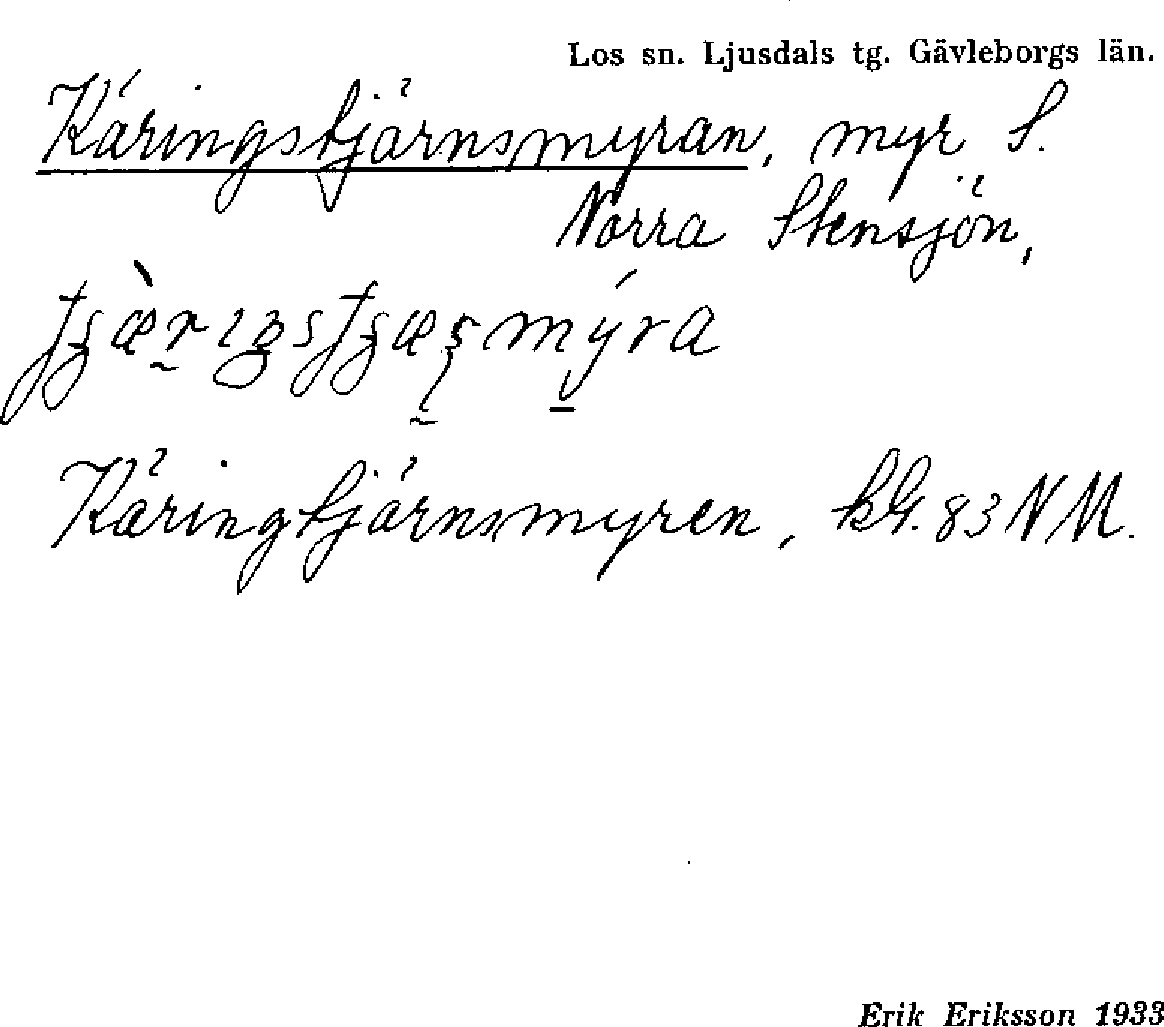 Los sn. Ljusdals tg. Gävleborgs län.
Käringstjärnsmyran, myr S.
Norra Stensjön,
Käringtjärnsmyren, 83 NM.
Erik Eriksson 1933